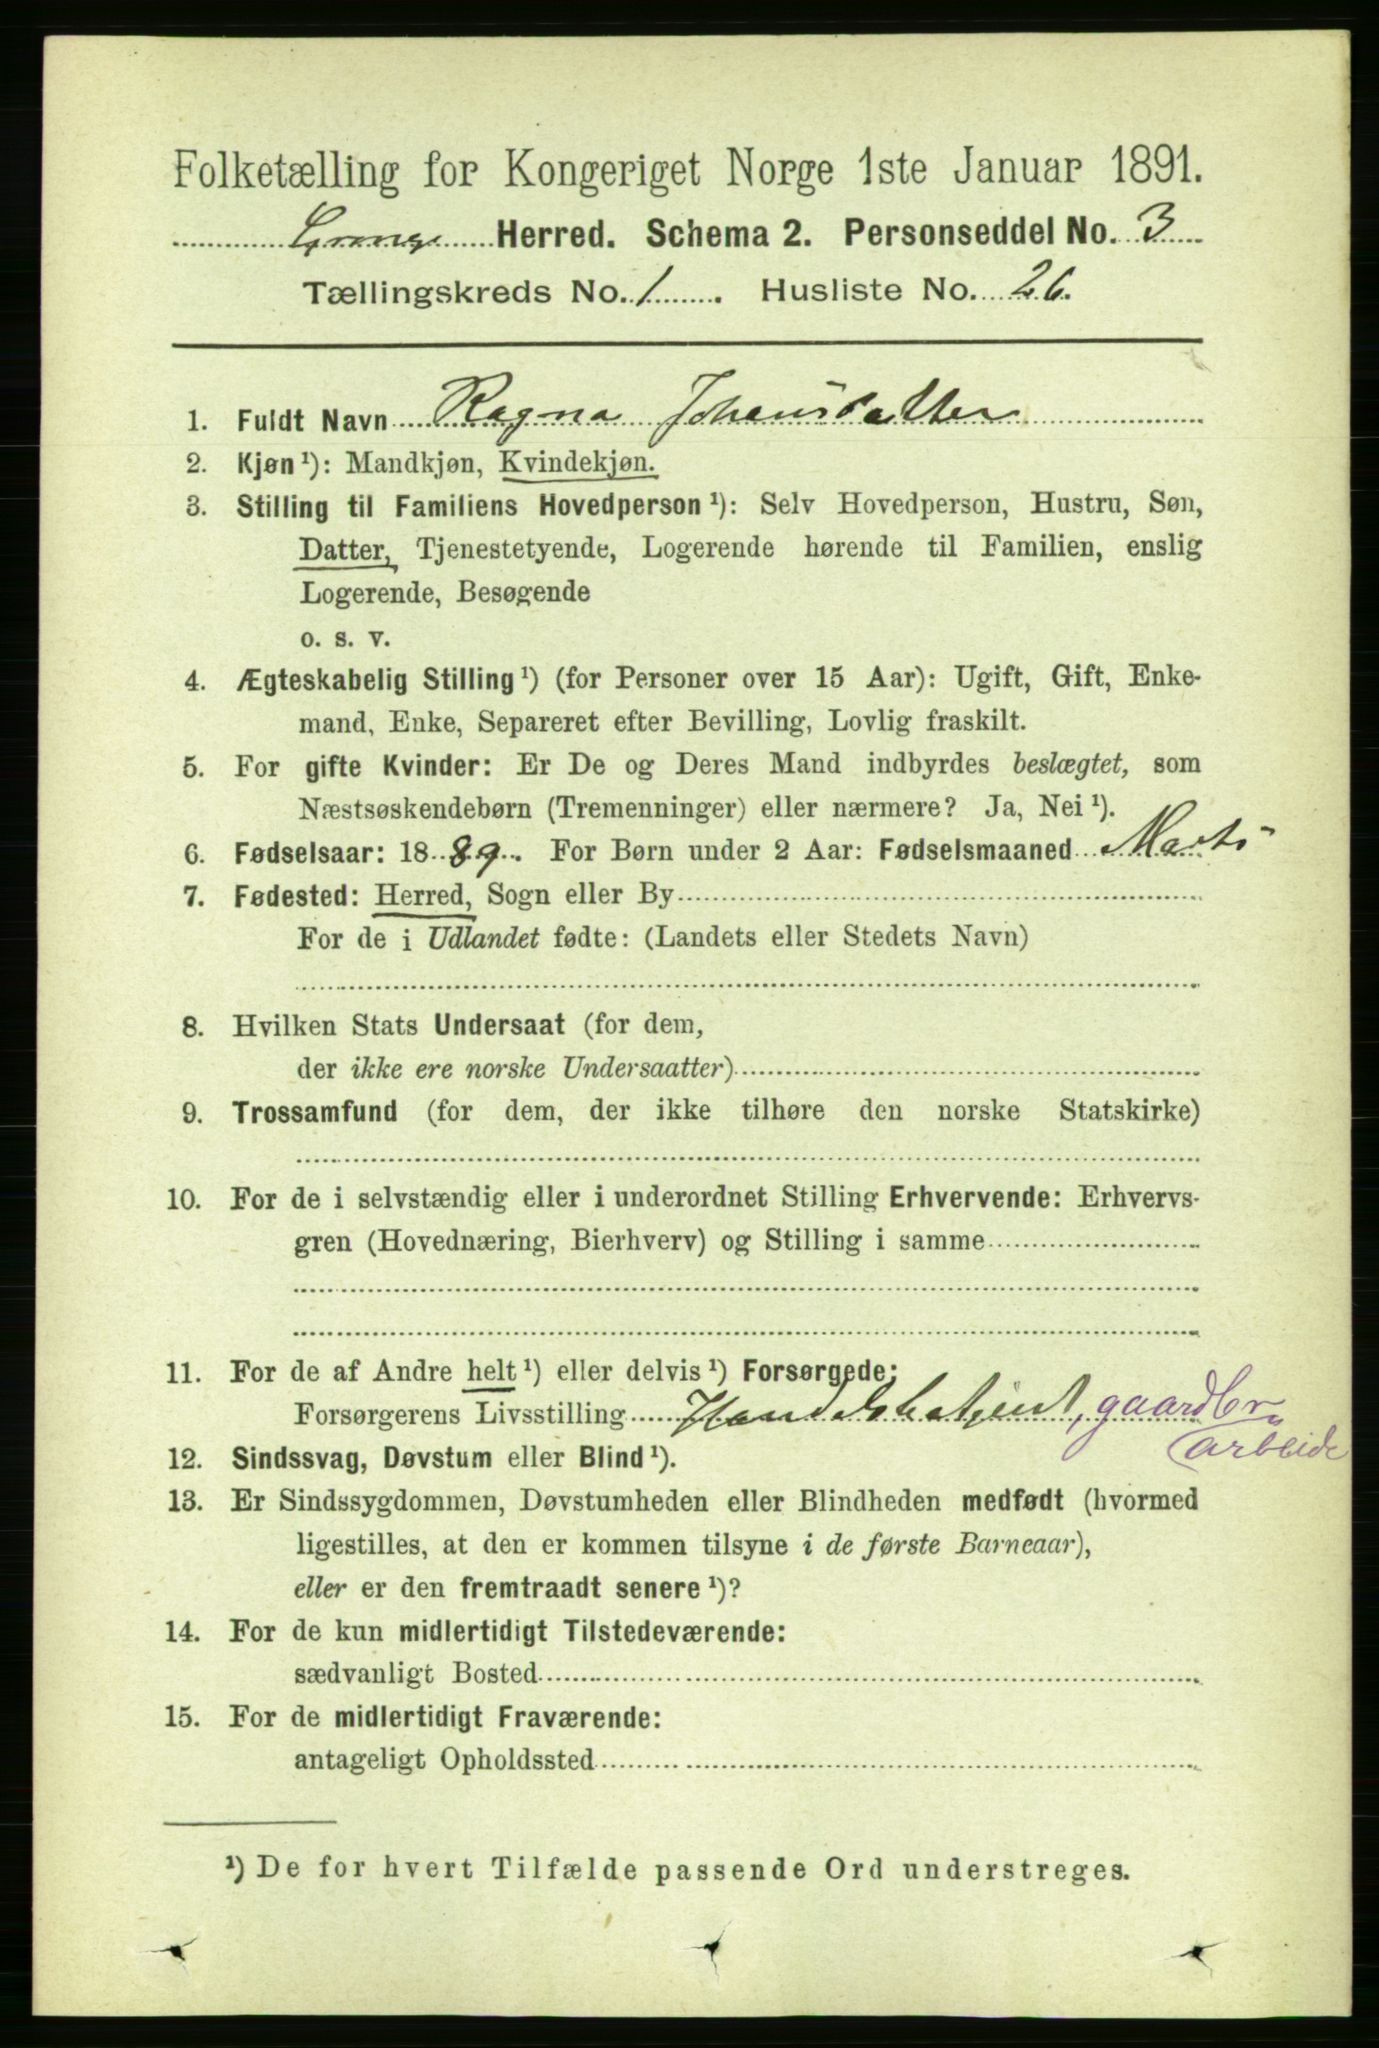 Folketælling for Kongeriget Norge 1ste Januar 1891.
Herred. Schema 2. Personseddel No. 3
Tællingskreds No. 1. Husliste No. 26.
1. Fuldt Navn Ragna Johansdatter
2. Kjøn ¹): Mandkjøn, Kvindekjøn.
3. Stilling til Familiens Hovedperson ¹): Selv Hovedperson, Hustru, Søn,
Datter, Tjenestetyende, Logerende hørende til Familien, enslig
Logerende, Besøgende
o. s. v.
4. Ægteskabelig Stilling ¹) (for Personer over 15 Aar): Ugift, Gift, Enke-
mand, Enke, Separeret efter Bevilling, Lovlig fraskilt.
5. For gifte Kvinder: Er De og Deres Mand indbyrdes beslægtet, som
Næstsøskendebørn (Tremenninger) eller nærmere? Ja, Nei ¹).
6. Fødselsaar: 1889. For Børn under 2 Aar: Fødselsmaaned Marts
7. Fødested: Herred, Sogn eller By
For de i Udlandet fødte: (Landets eller Stedets Navn)
8. Hvilken Stats Undersaat (for dem,
der ikke ere norske Undersaatter)
9. Trossamfund (for dem, der ikke tilhøre den norske Statskirke)
10. For de i selvstændig eller i underordnet Stilling Erhvervende: Erhvervs-
gren (Hovednæring, Bierhverv) og Stilling i samme
11. For de af Andre helt ¹) eller delvis ¹) Forsørgede:
Forsørgerens Livsstilling Handelsbetjent, gaardbr.
arbeide
12. Sindssvag, Døvstum eller Blind ¹).
13. Er Sindssygdommen, Døvstumheden eller Blindheden medfødt (hvormed
ligestilles, at den er kommen tilsyne i de første Barneaar),
eller er den fremtraadt senere ¹)?
14. For de kun midlertidigt Tilstedeværende:
sædvanligt Bosted
15. For de midlertidigt Fraværende:
antageligt Opholdssted
¹) De for hvert Tilfælde passende Ord understreges.